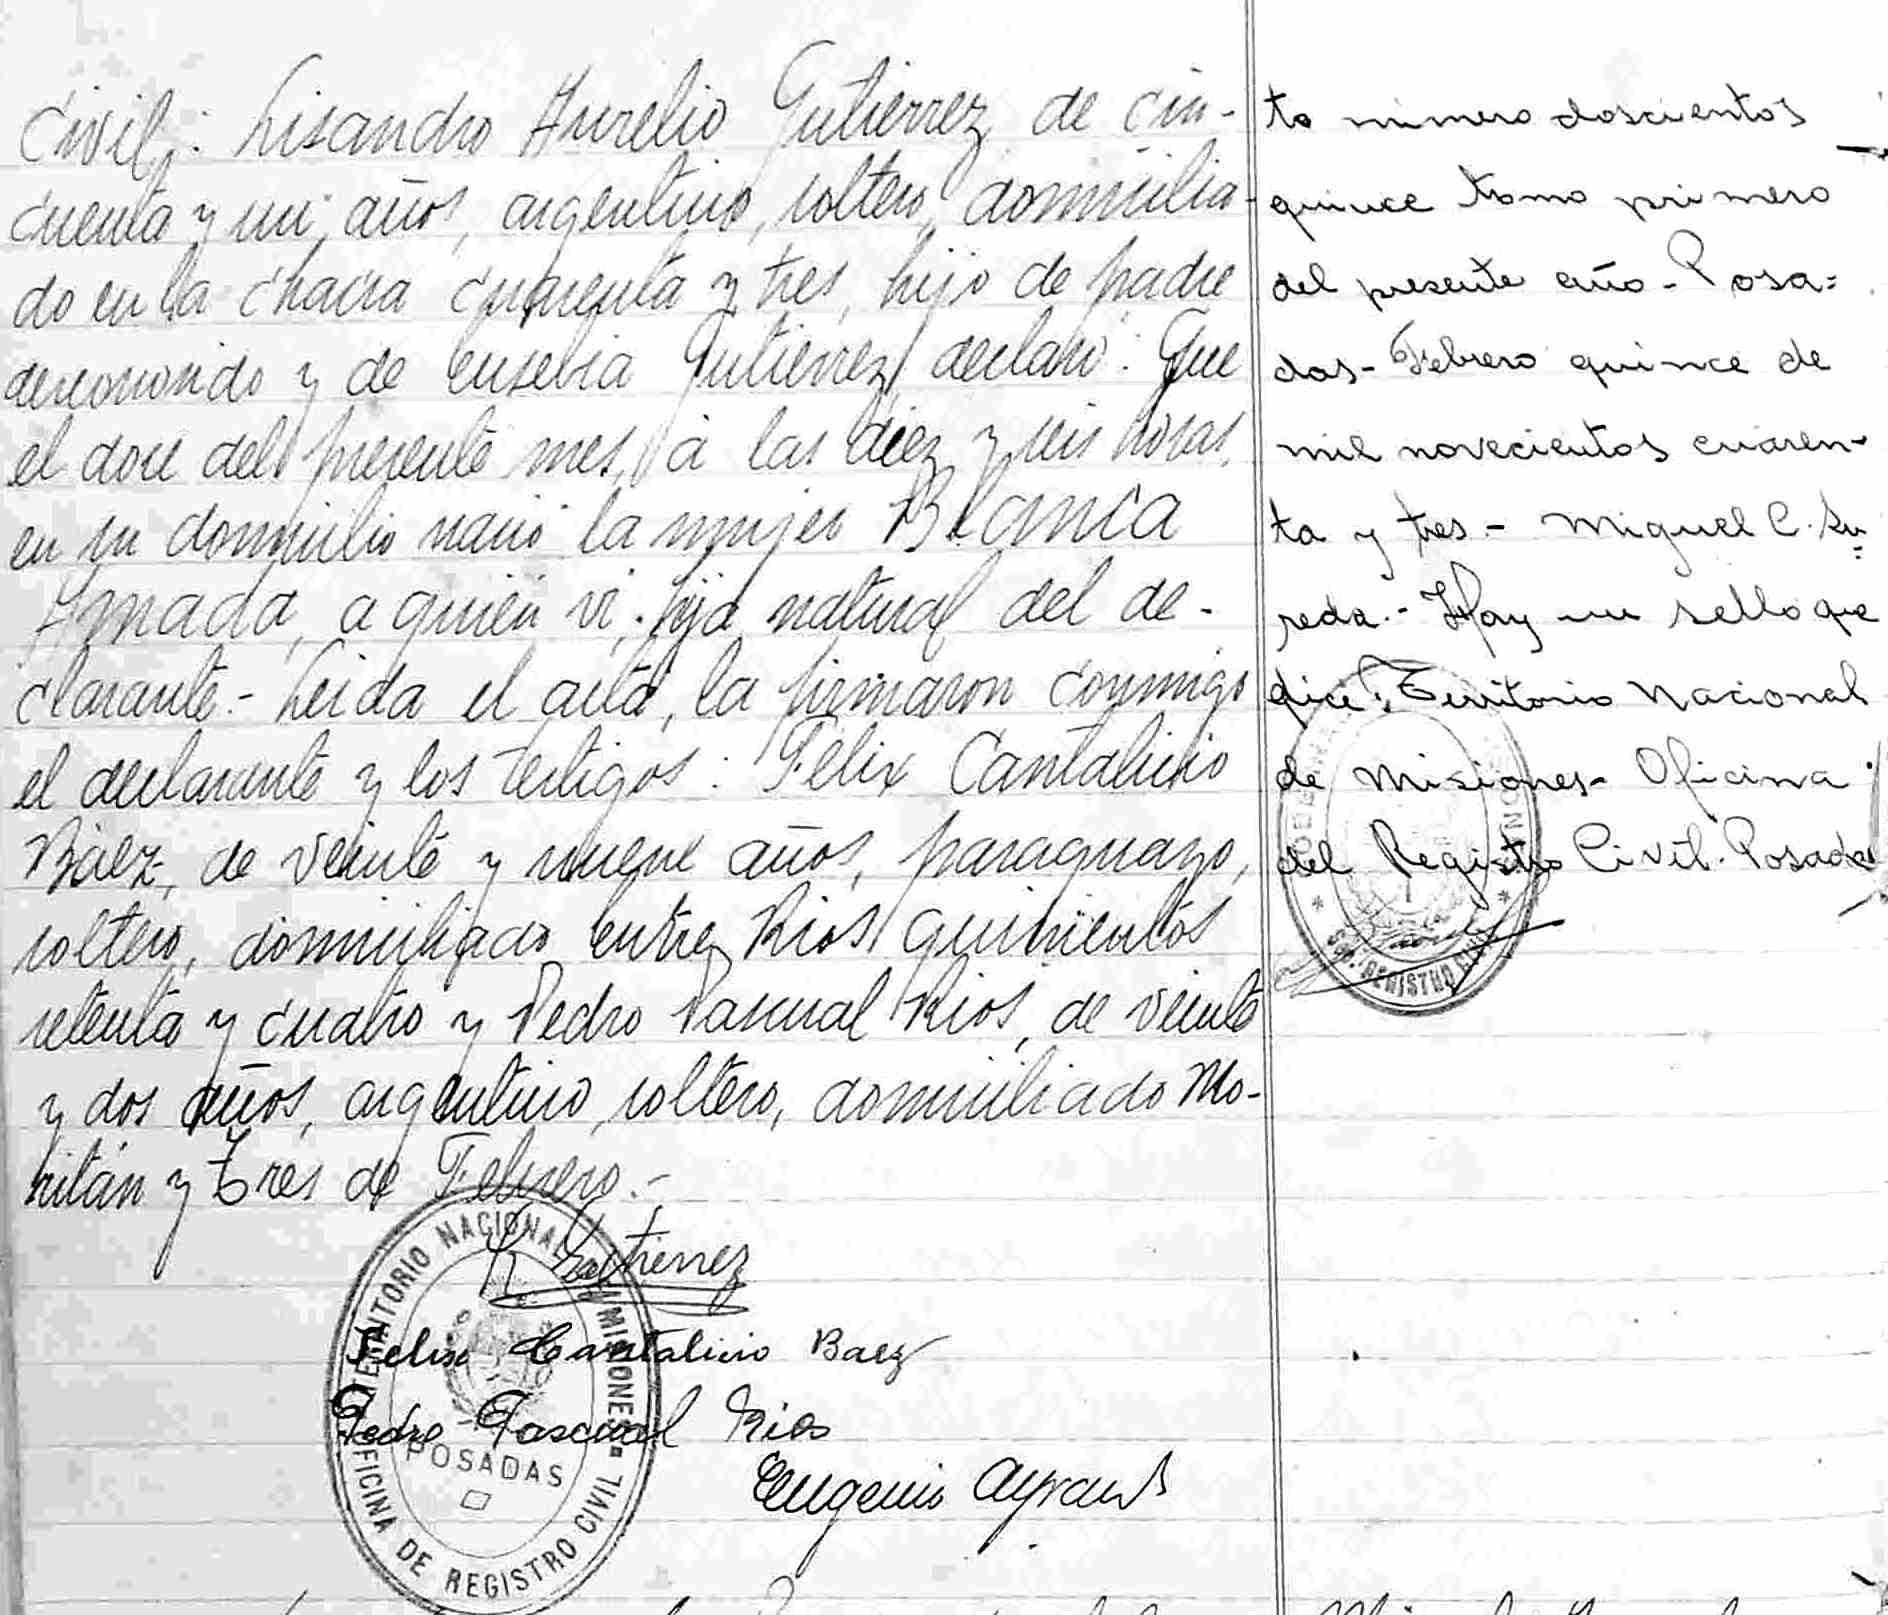 Civil: Lisandro Aurelio Gutierrez, de cin-
cuenta y un años, argentino, soltero, domicilia-
do en la chacra cuarenta y tres, hijo de padre
desconocido y de Eusebia Gutierrez, declaró: Que
el doce del presente mes, á las diez y seis horas,
en su domicilio nació la mujer Blanca
Amada, a quién vi, hija natural del de-
clarante.- Leida el acta, la firmaron conmigo
el declarante y los testigos: Félix Cantalicio
Báez, de veinte y nueve años, paraguayo,
soltero, domiciliado entre Rios quinientos
setenta y cuatro y Pedro Pascual Rios, de veinte
y dos años, argentino, soltero, domiciliado Mo-
ritán y Tres de Febrero.-
Gutierrez
Felix Cantalicio Baez
Pedro Pascual Rios
Eugenio
TERRITORIO NACIONAL MISIONES
POSADAS
OFICINA DE REGISTRO CIVIL
to número doscientos
quince tomo primero
del presente año - Posa=
das - Febrero quince de
mil novecientos cuaren-
ta y tres - Miguel C. Su=
reda.- Hay un sello que
dice: Territorio Nacional
de Misiones - Oficina
del Registro Civil. Posadas
REGISTRO CIVIL